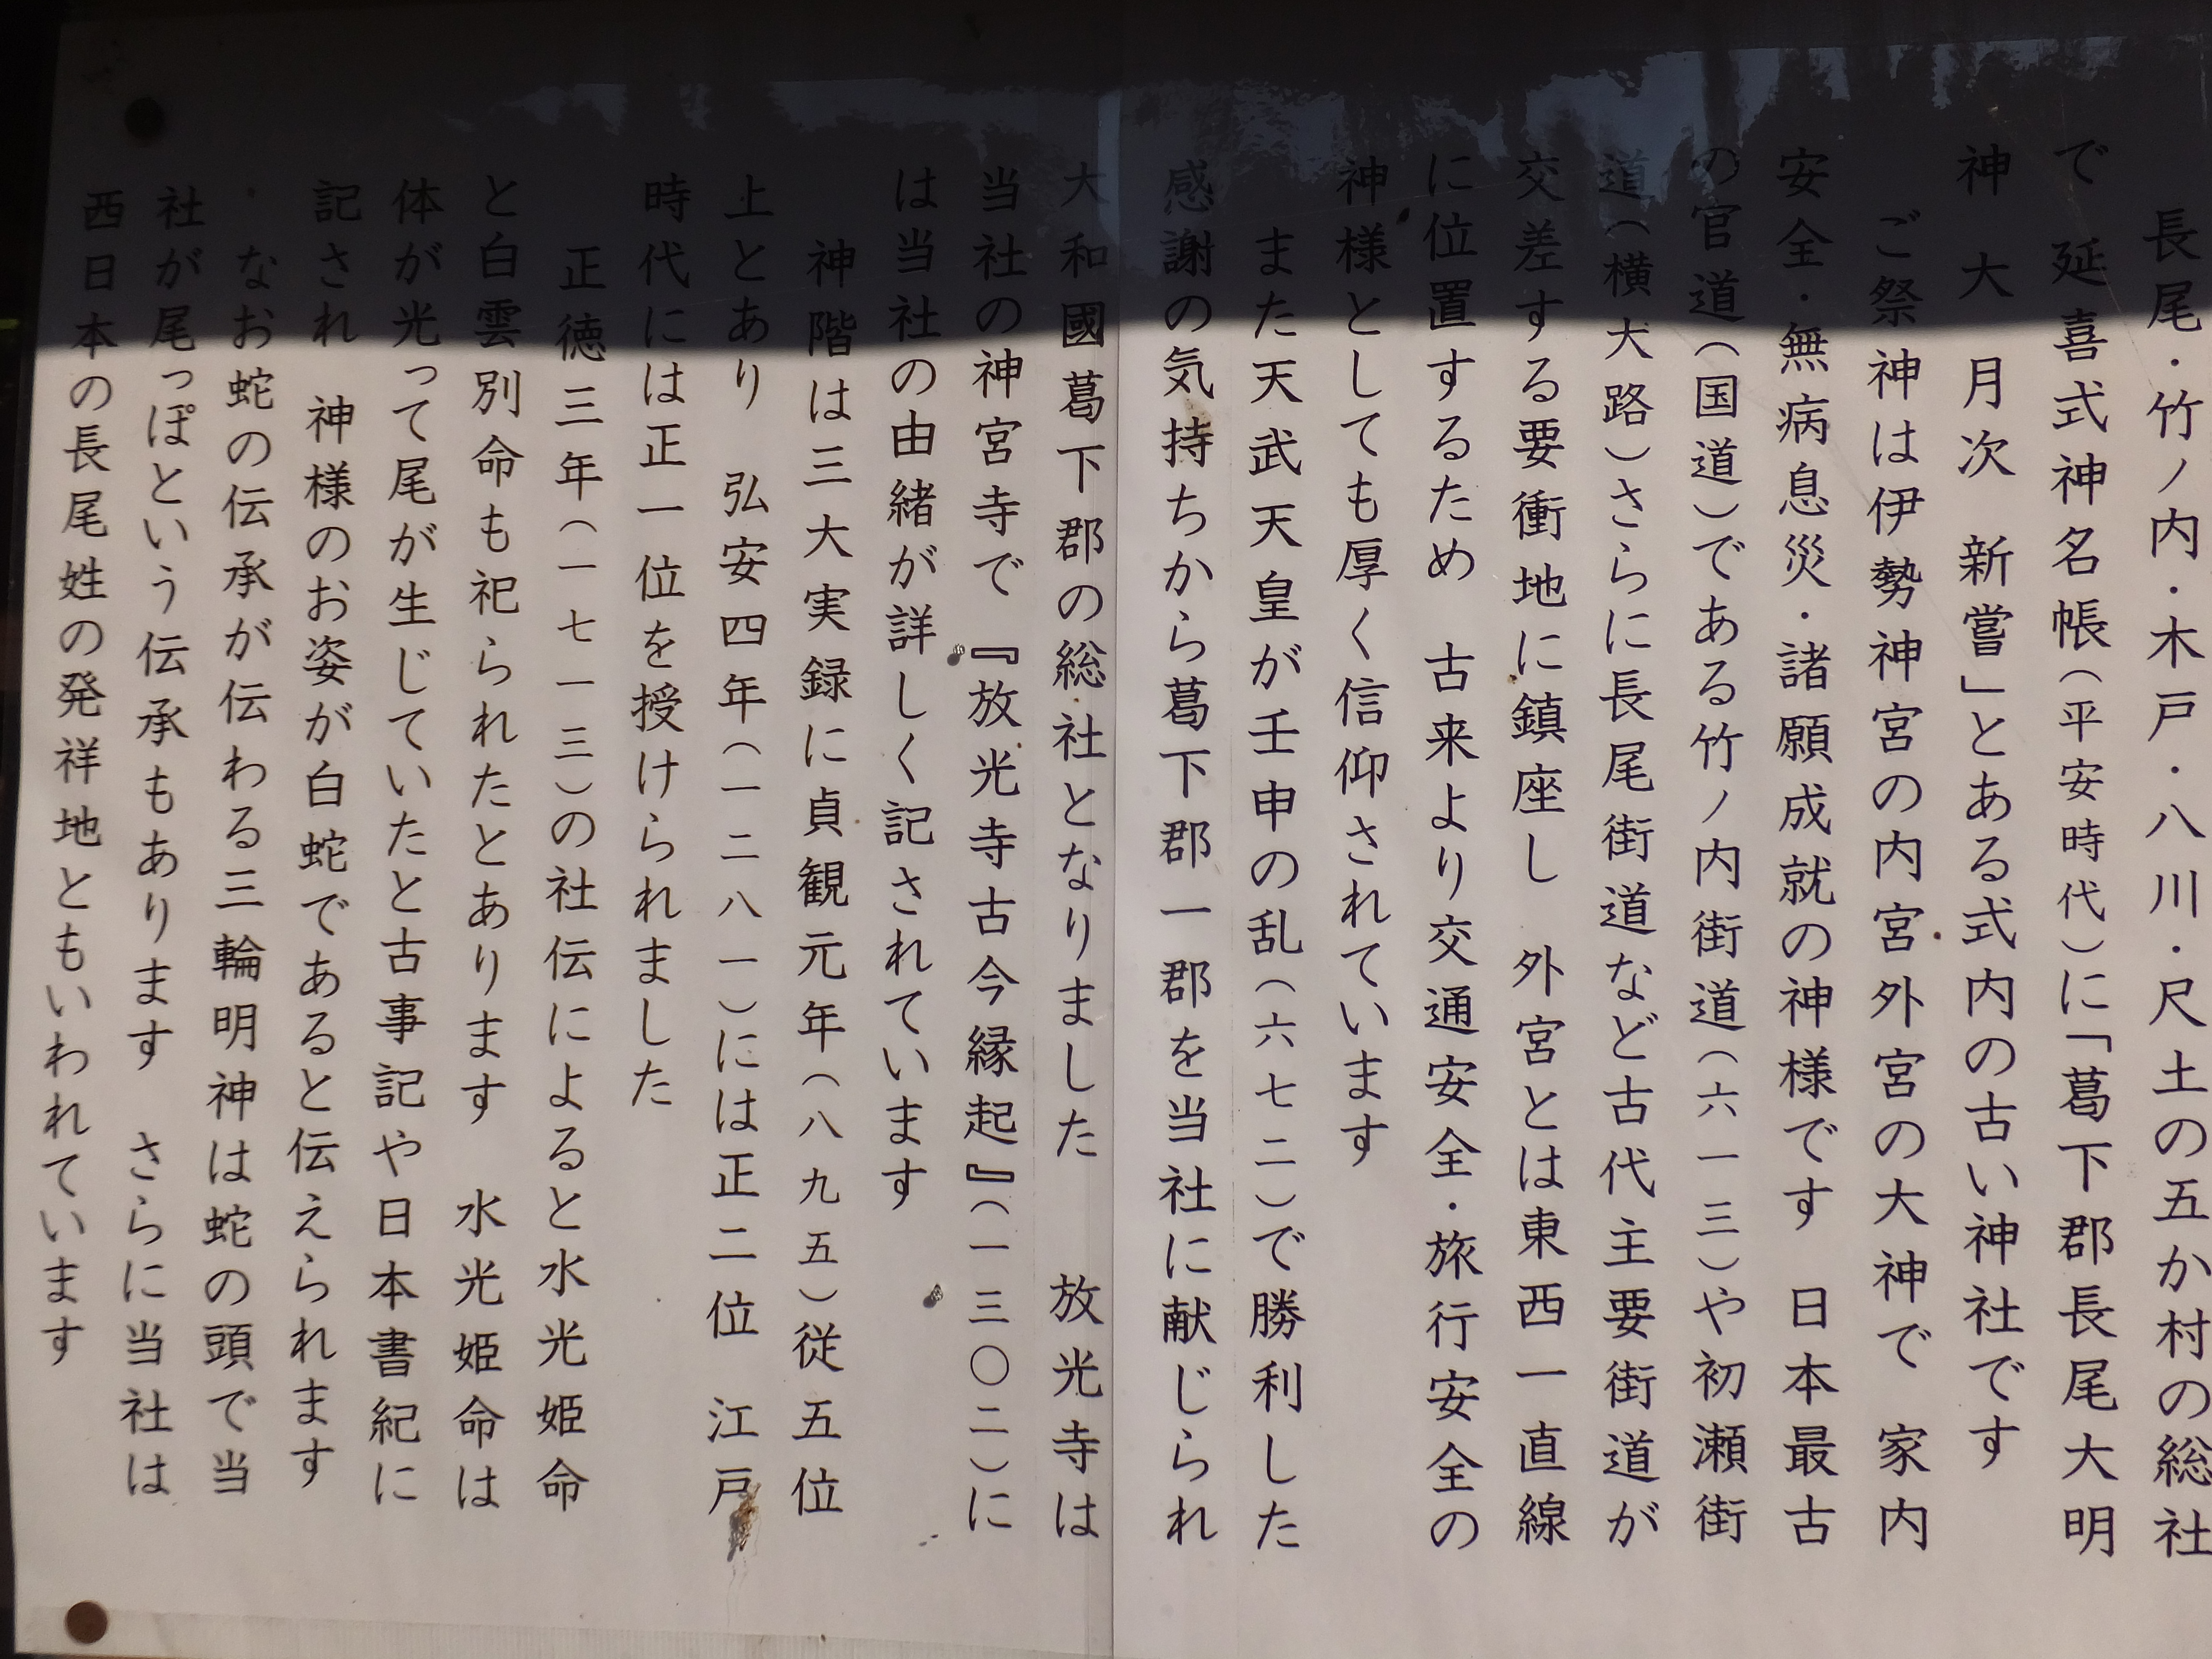 長尾・竹ノ内・木戸・八川・尺土の五か村の総社
で　延喜式神名帳（平安時代）に「葛下郡長尾大明
神　大　月次　新嘗」とある式内の古い神社です
ご祭神は伊勢神宮の内宮外宮の大神で　家内
安全・無病息災・諸願成就の神様です　日本最古
の官道（国道）である竹ノ内街道（六一三）や初瀬街
道（横大路）さらに長尾街道など古代主要街道が
交差する要衝地に鎮座し　外宮とは東西一直線
に位置するため　古来より交通安全・旅行安全の
神様としても厚く信仰されています
また天武天皇が壬申の乱（六七二）で勝利した
感謝の気持ちから葛下郡一郡を当社に献じられ
大和國葛下郡の総社となりました　放光寺は
当社の神宮寺で『放光寺古今縁起』（一三〇二）に
は当社の由緒が詳しく記されています
神階は三大実録に貞観元年（八九五）従五位
上とあり　弘安四年（一二八一）には正二位　江戸
時代には正一位を授けられました
正徳三年（一七一三）の社伝によると水光姫命
と白雲別命も祀られたとあります　水光姫命は
体が光って尾が生じていたと古事記や日本書紀に
記され　神様のお姿が白蛇であると伝えられます
なお蛇の伝承が伝わる三輪明神は蛇の頭で当
社が尾っぽという伝承もあります　さらに当社は
西日本の長尾姓の発祥地ともいわれています